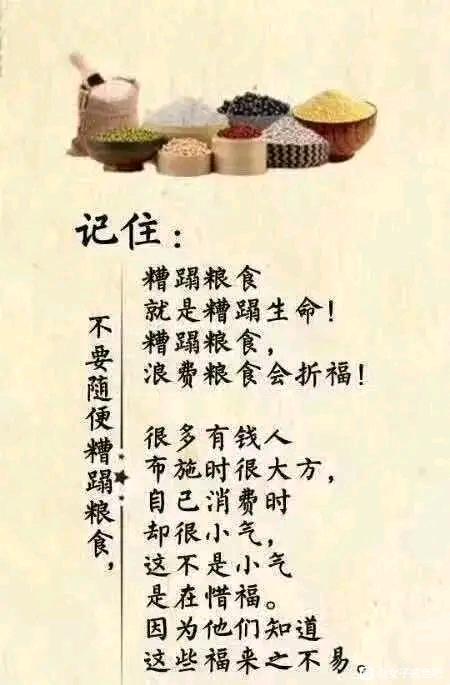 记住：
不要随便糟蹋粮食，
糟蹋粮食
就是糟蹋生命！
糟蹋粮食，
浪费粮食会折福！
很多有钱人
布施时很大方，
自己消费时
却很小气，
这不是小气
是在惜福。
因为他们知道
这些福来之不易。